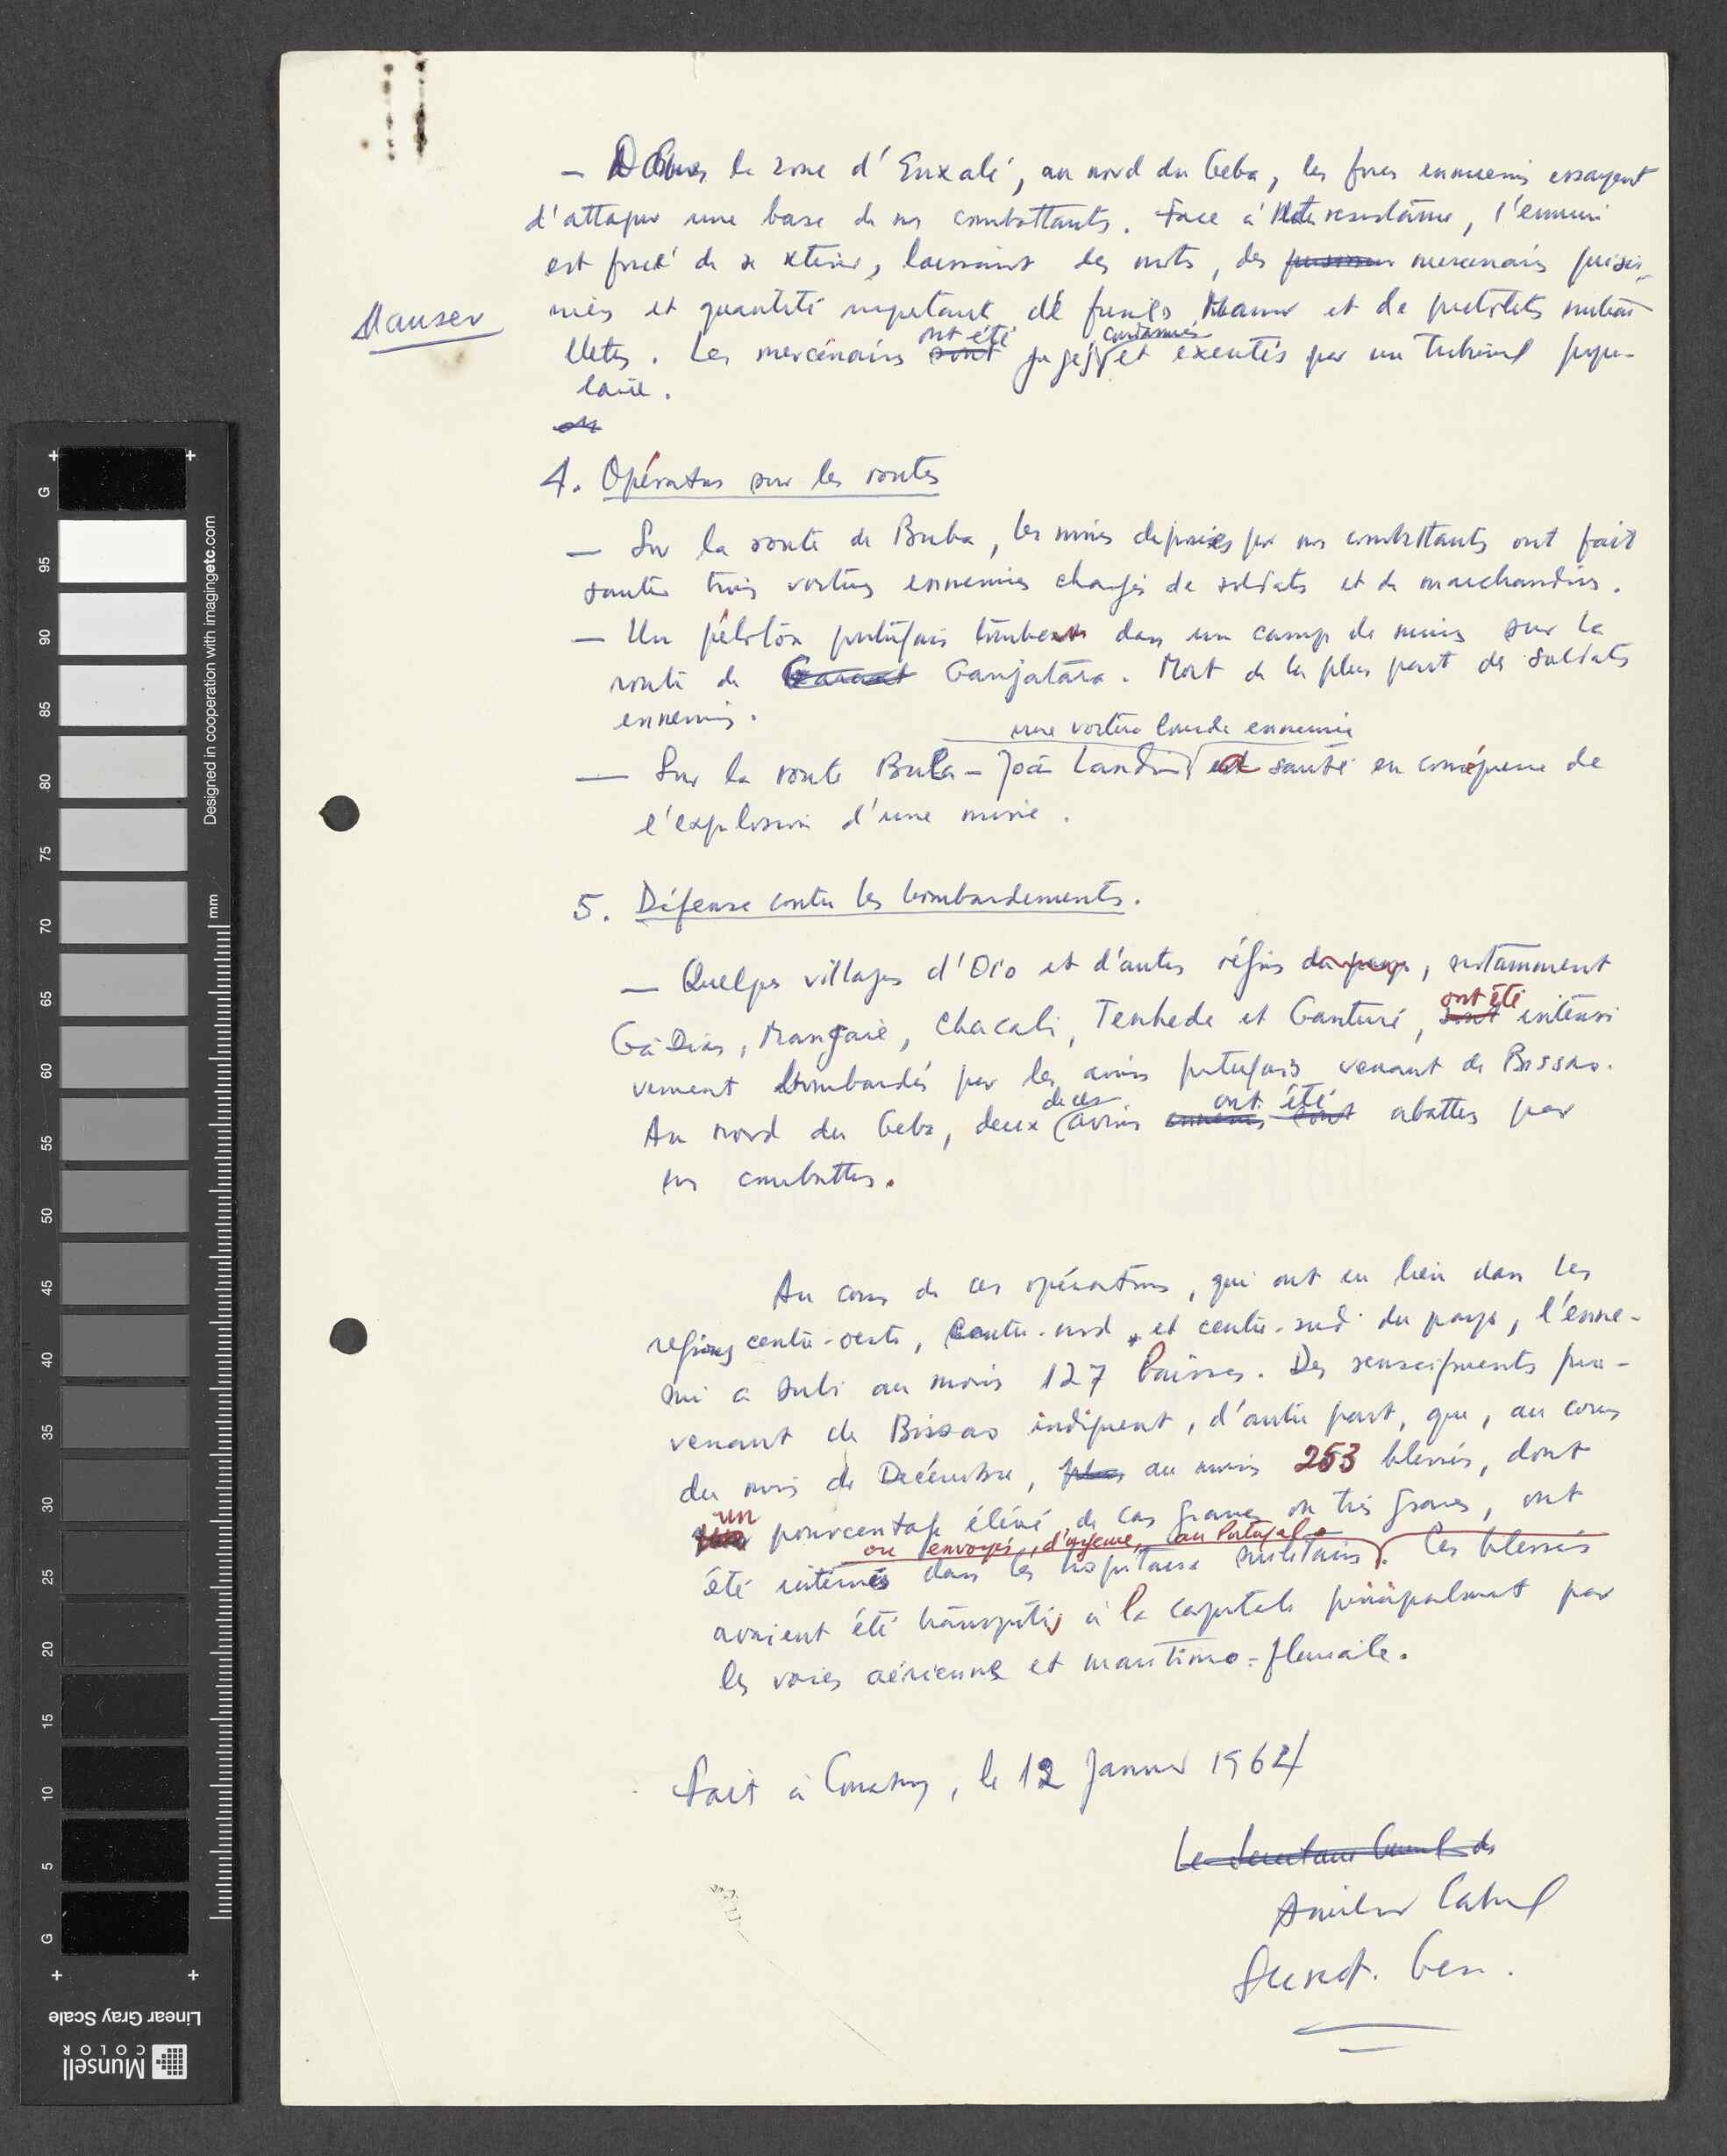 — Dans la zone d'Enxalé, au nord du Geba, les forces ennemies essayent
d'attaquer une base de nos combattants. Face à notre resistance, l'ennemi
est forcé de se retirer, laissant des morts, des mercenaires prison-
niers et quantité importante de fusils Mauser et de pistolets mitrai-
Mauser
llettes. Les mercénaires ont été jugés, condamnés et exécutés par un Tribunal popu-
laire.
4. Opérations sur les routes
— Sur la route de Buba, les mines deposées par nos combattants ont fait
sauter trois voitures ennemies chargées de soldats et de marchandises.
— Un péloton portugais tombe dans un camp de mines sur la
route de Ganjatara. Mort de la plus part des soldats
ennemis.
une voiture lourde ennemie
— Sur la route Bula - João Landim a sauté en conséquence de
l'explosion d'une mine.
5. Défense contre les bombardements.
— Quelques villages d'Oio et d'autres régions du pays, notamment
Gã Dias, Mangaie, Chacali, Tenhede et Ganturé, ont été intensi
vement bombardés par les avions portugais venant de Bissao.
Au nord du Geba, deux de ces avions ont été abattus par
nos combattants.
Au cours de ces opérations, qui ont eu lieu dans les
regions centre-ouest, centre-nord et centre-sud du pays, l'enne-
mi a subi au moins 127 baisses. Des renseignements pro-
venant de Bissao indiquent, d'autre part, que, au cours
du mois de Décembre, au moins 253 blessés, dont
un pourcentage élévé de cas graves ou très graves, ont
ou envoyés, d'urgence, au Portugal.
été internés dans les hopitaux militaires. Ces blessés
avaient été transportés à la capitale principalement par
les voies aérienne et maritimo-fluviale.
Fait à Conakry, le 12 Janvier 1964
Le Secretaire General du
Amilcar Cabral
Secret. Gen.
Designed in cooperation with imagingetc.com
mm
G
95
90
85
80
75
70
65
60
55
50
45
40
35
30
25
20
15
10
5
G
Linear Gray Scale
Munsell
COLOR